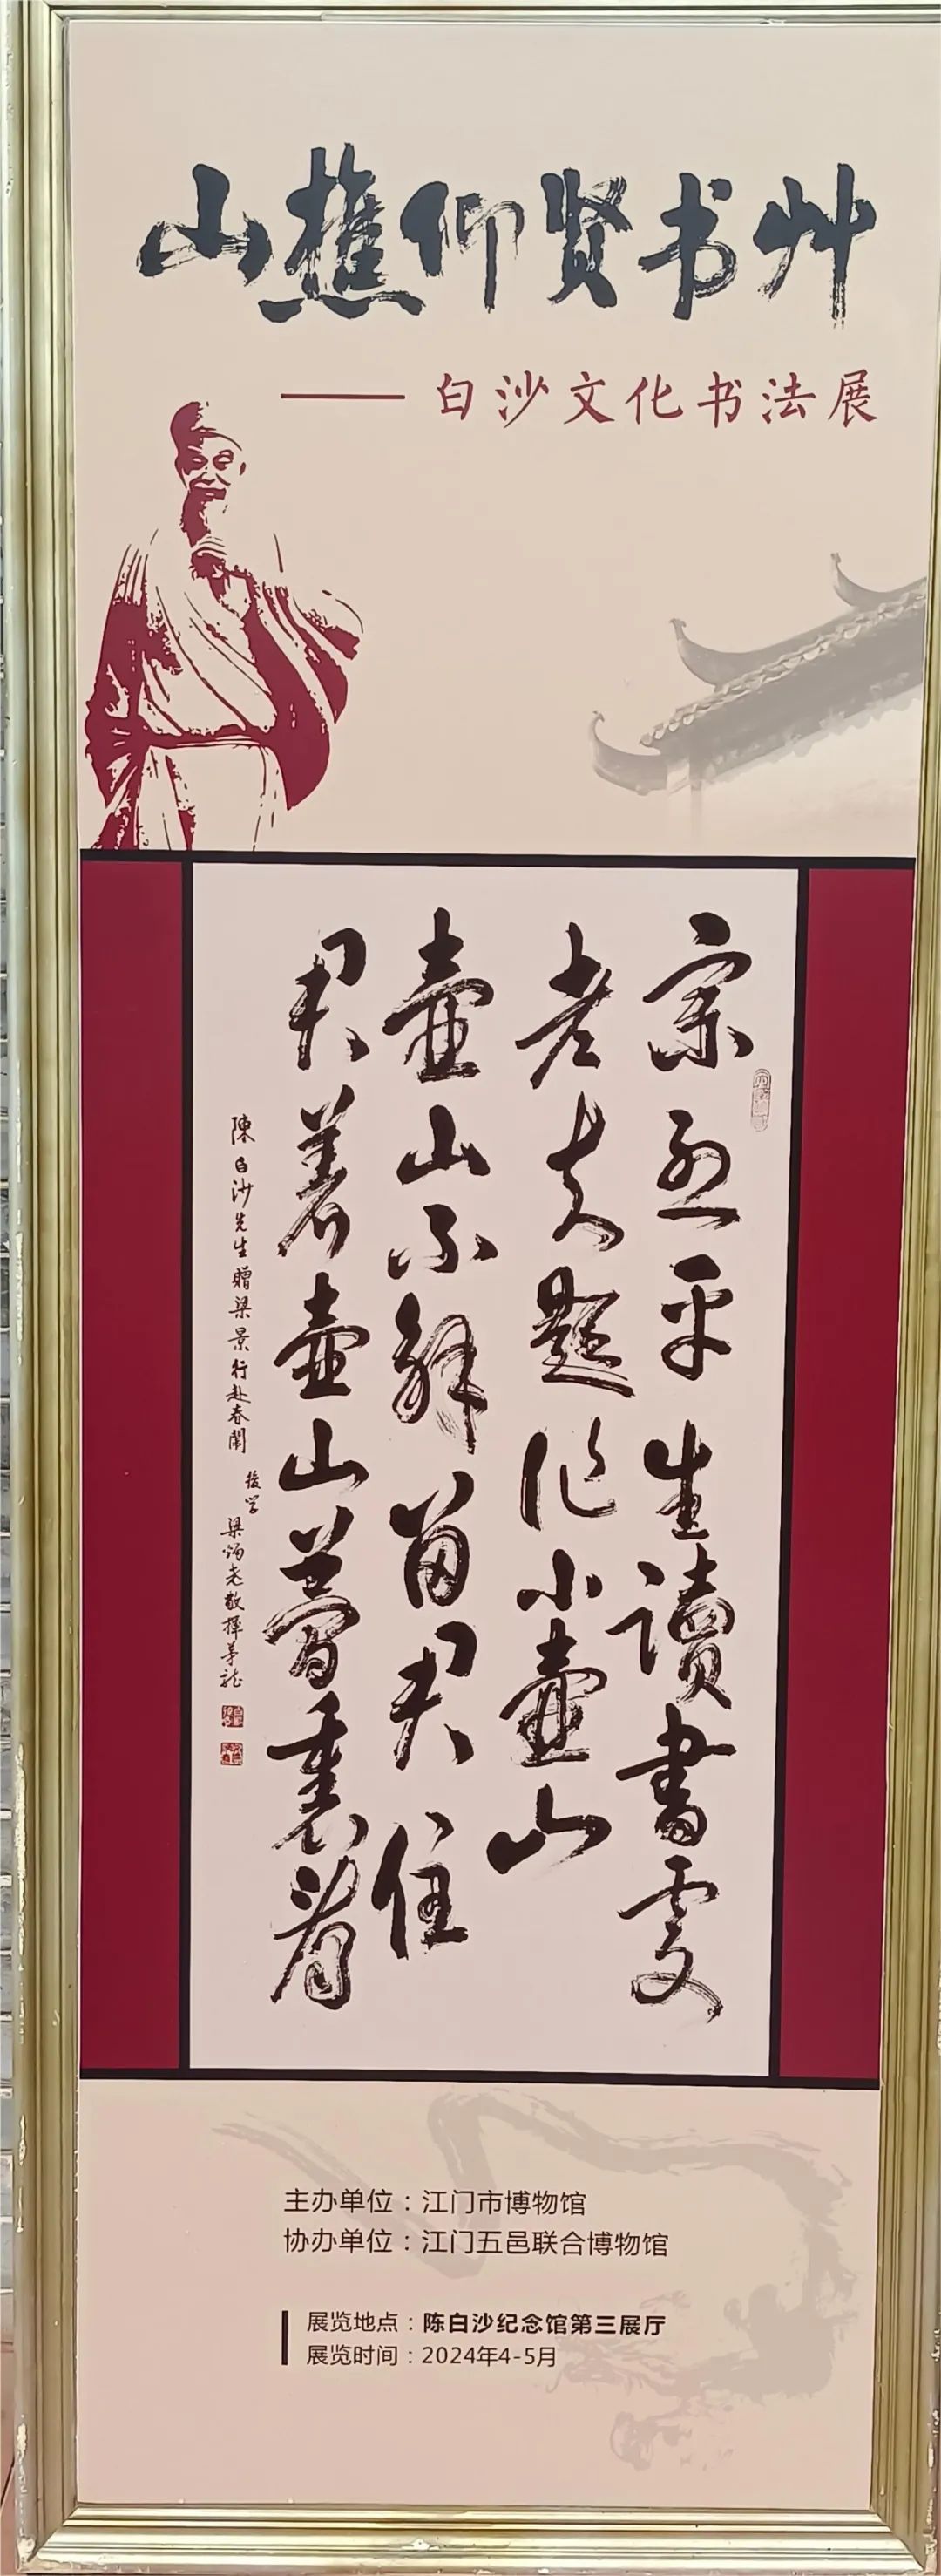 山樵仰贤书艸
——白沙文化书法展
宗烈平生讀書處
老夫題作小壺山
壺山不解留君住
君著壺山夢裏看
陳白沙先生贈梁景行赴春闈
後学
梁老敬揮茅龙
主办单位：江门市博物馆
协办单位：江门五邑联合博物馆
展览地点：陈白沙纪念馆第三展厅
展览时间：2024年4-5月